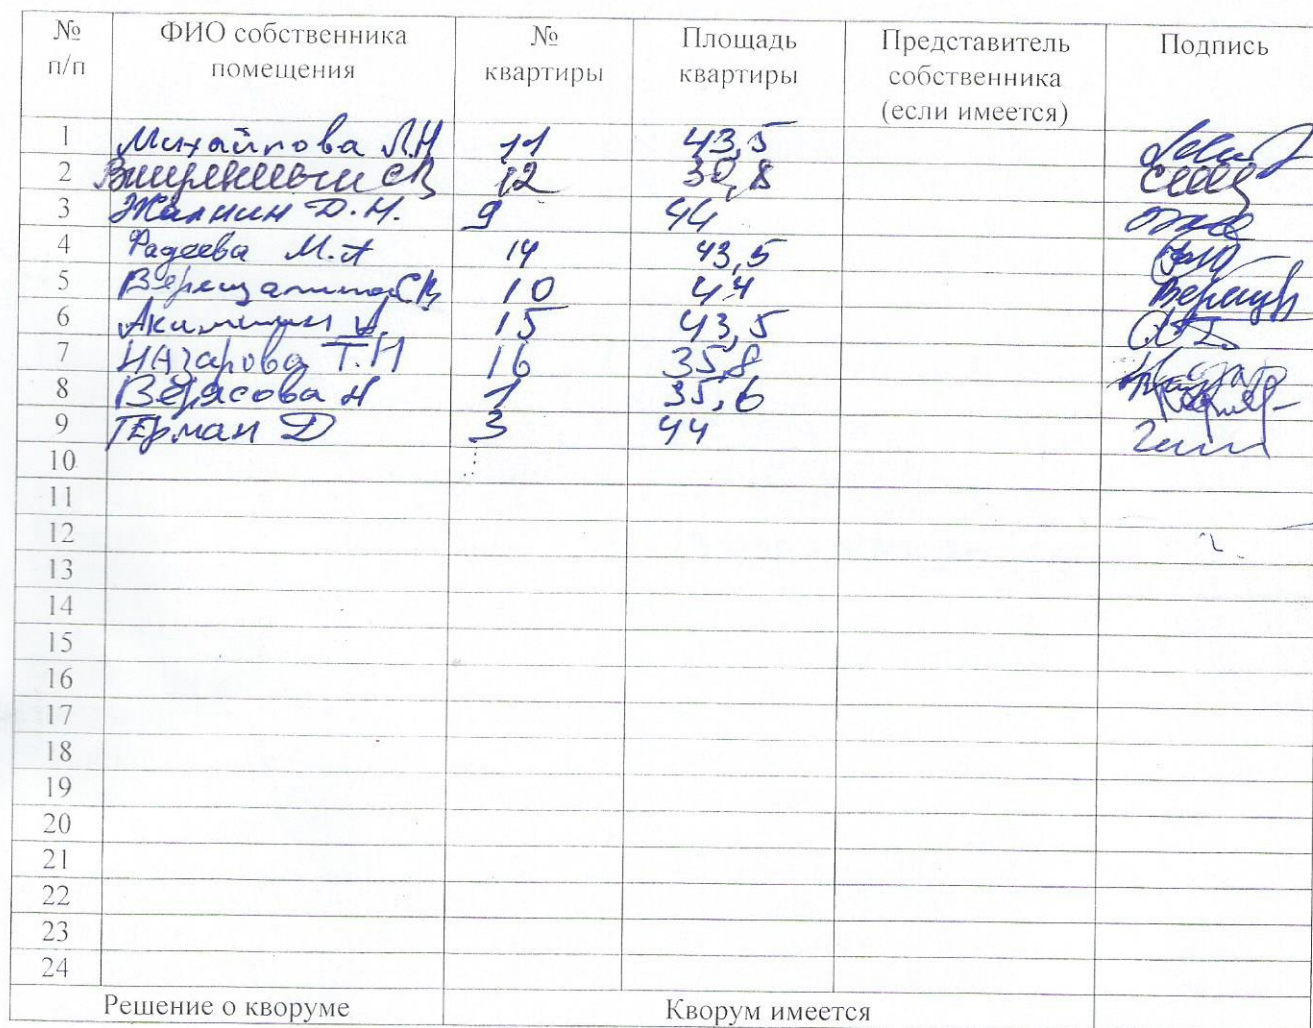 № п/п ФИО собственника помещения № квартиры Площадь квартиры Представитель собственника (если имеется) Подпись
1 Михайлова Л.Н 11 43,5
2 12 30,8
3 Жалнин Д.Н. 9 44
4 Фадеева М.А 14 43,5
5 10 44
6 15 43,5
7 Назарова Т.Н 16 35,8
8 Верясова Н 1 35,6
9 Герман Д 3 44
10
11
12
13
14
15
16
17
18
19
20
21
22
23
24
Решение о кворуме Кворум имеется